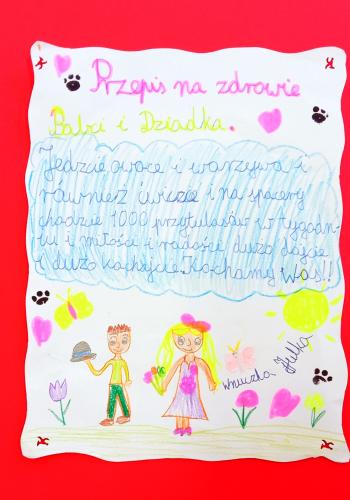 Przepis na zdrowie
Babci i Dziadka.
Jedzcie owoce i warzywa i
również ćwiczcie i na spacery
chodzcie 1000 przytulasów w tygod-
niu i miłości i radości dużo dajcie
i dużo kochajcie. Kochamy was!!
wnuczka Julka